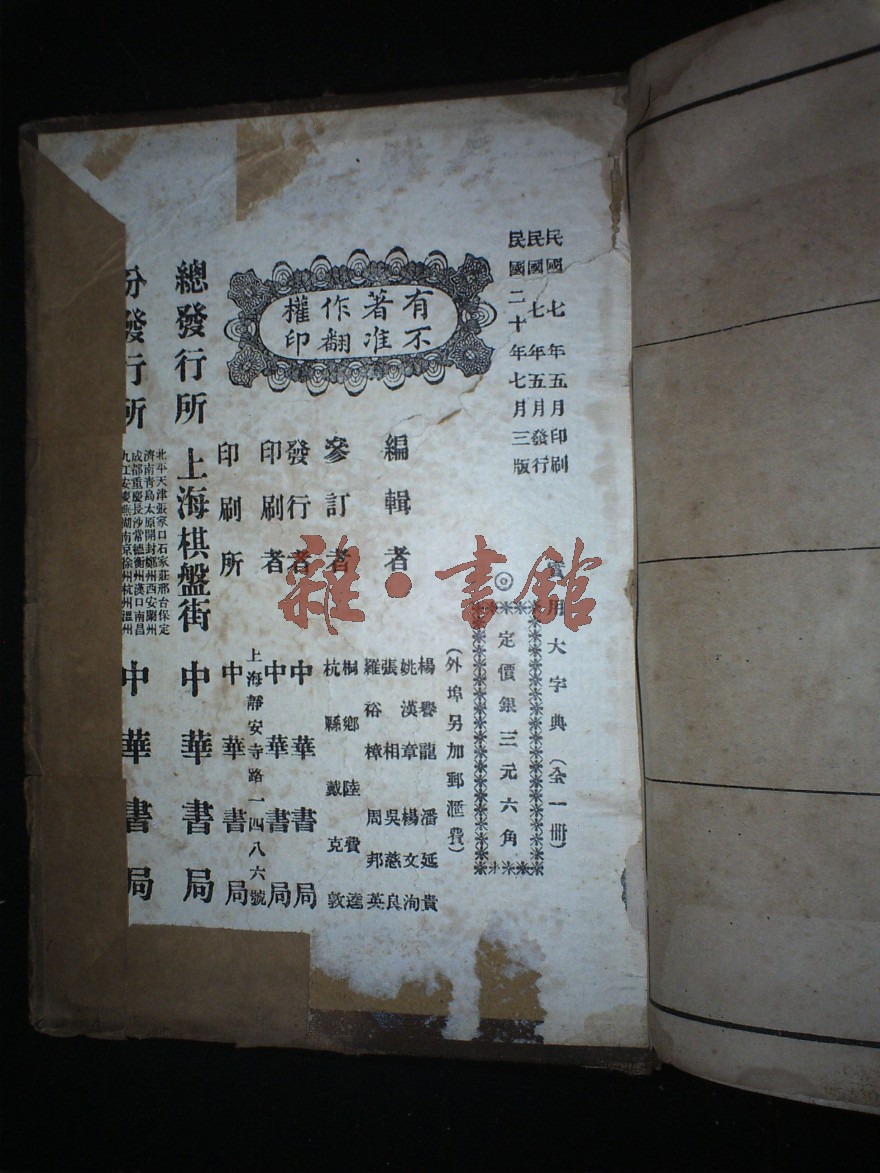 民國七年五月印刷
民國七年五月發行
民國二十年七月三版
實用大字典（全一冊）
◎定價銀三元六角
（外埠另加郵滙費）
有著作權
不准翻印
編輯者
楊譽龍 潘延貴
姚漢章 楊文洵
張相 吳慈良
羅裕樟 周邦英
參訂者
桐鄉陸費逵
杭縣戴克敦
發行者 中華書局
印刷者 中華書局
印刷所 上海靜安寺路一四八六號
中華書局
總發行所 上海棋盤街 中華書局
分發行所
北平天津張家口石家莊邢台保定
濟南青島太原開封鄭州西安蘭州
成都重慶長沙常德衡州漢口南昌
九江安慶蕪湖南京徐州杭州溫州
中華書局
雜·書館